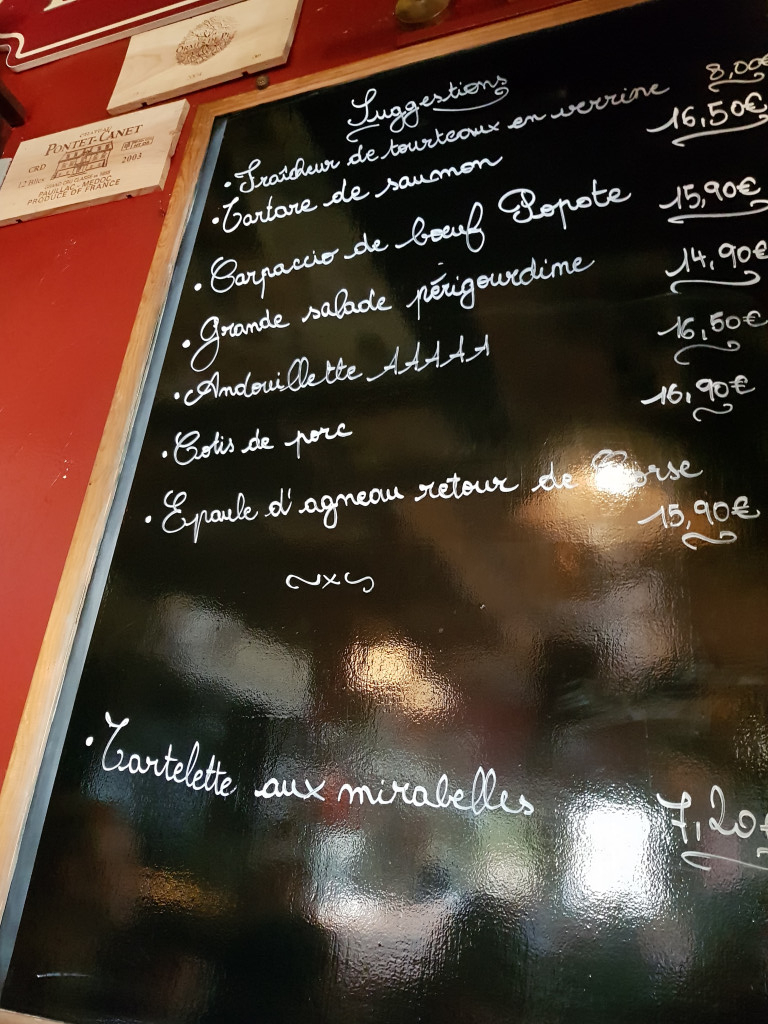 Suggestions
• Fraîcheur de tourteaux en verrine 8,00€
• Tartare de saumon 16,50€
• Carpaccio de bœuf Popote 15,90€
• Grande salade périgourdime 14,90€
• Andouillette AAAAA 16,50€
• Cotis de porc 16,90€
• Epaule d'agneau retour de Corse
15,90€
• Tartelette aux mirabelles 7,20€
CHATEAU
PONTET-CANET
CRD
2003
12 Btles
GRAND CRU CLASSÉ EN 1855
PAUILLAC - MEDOC
PRODUCE OF FRANCE